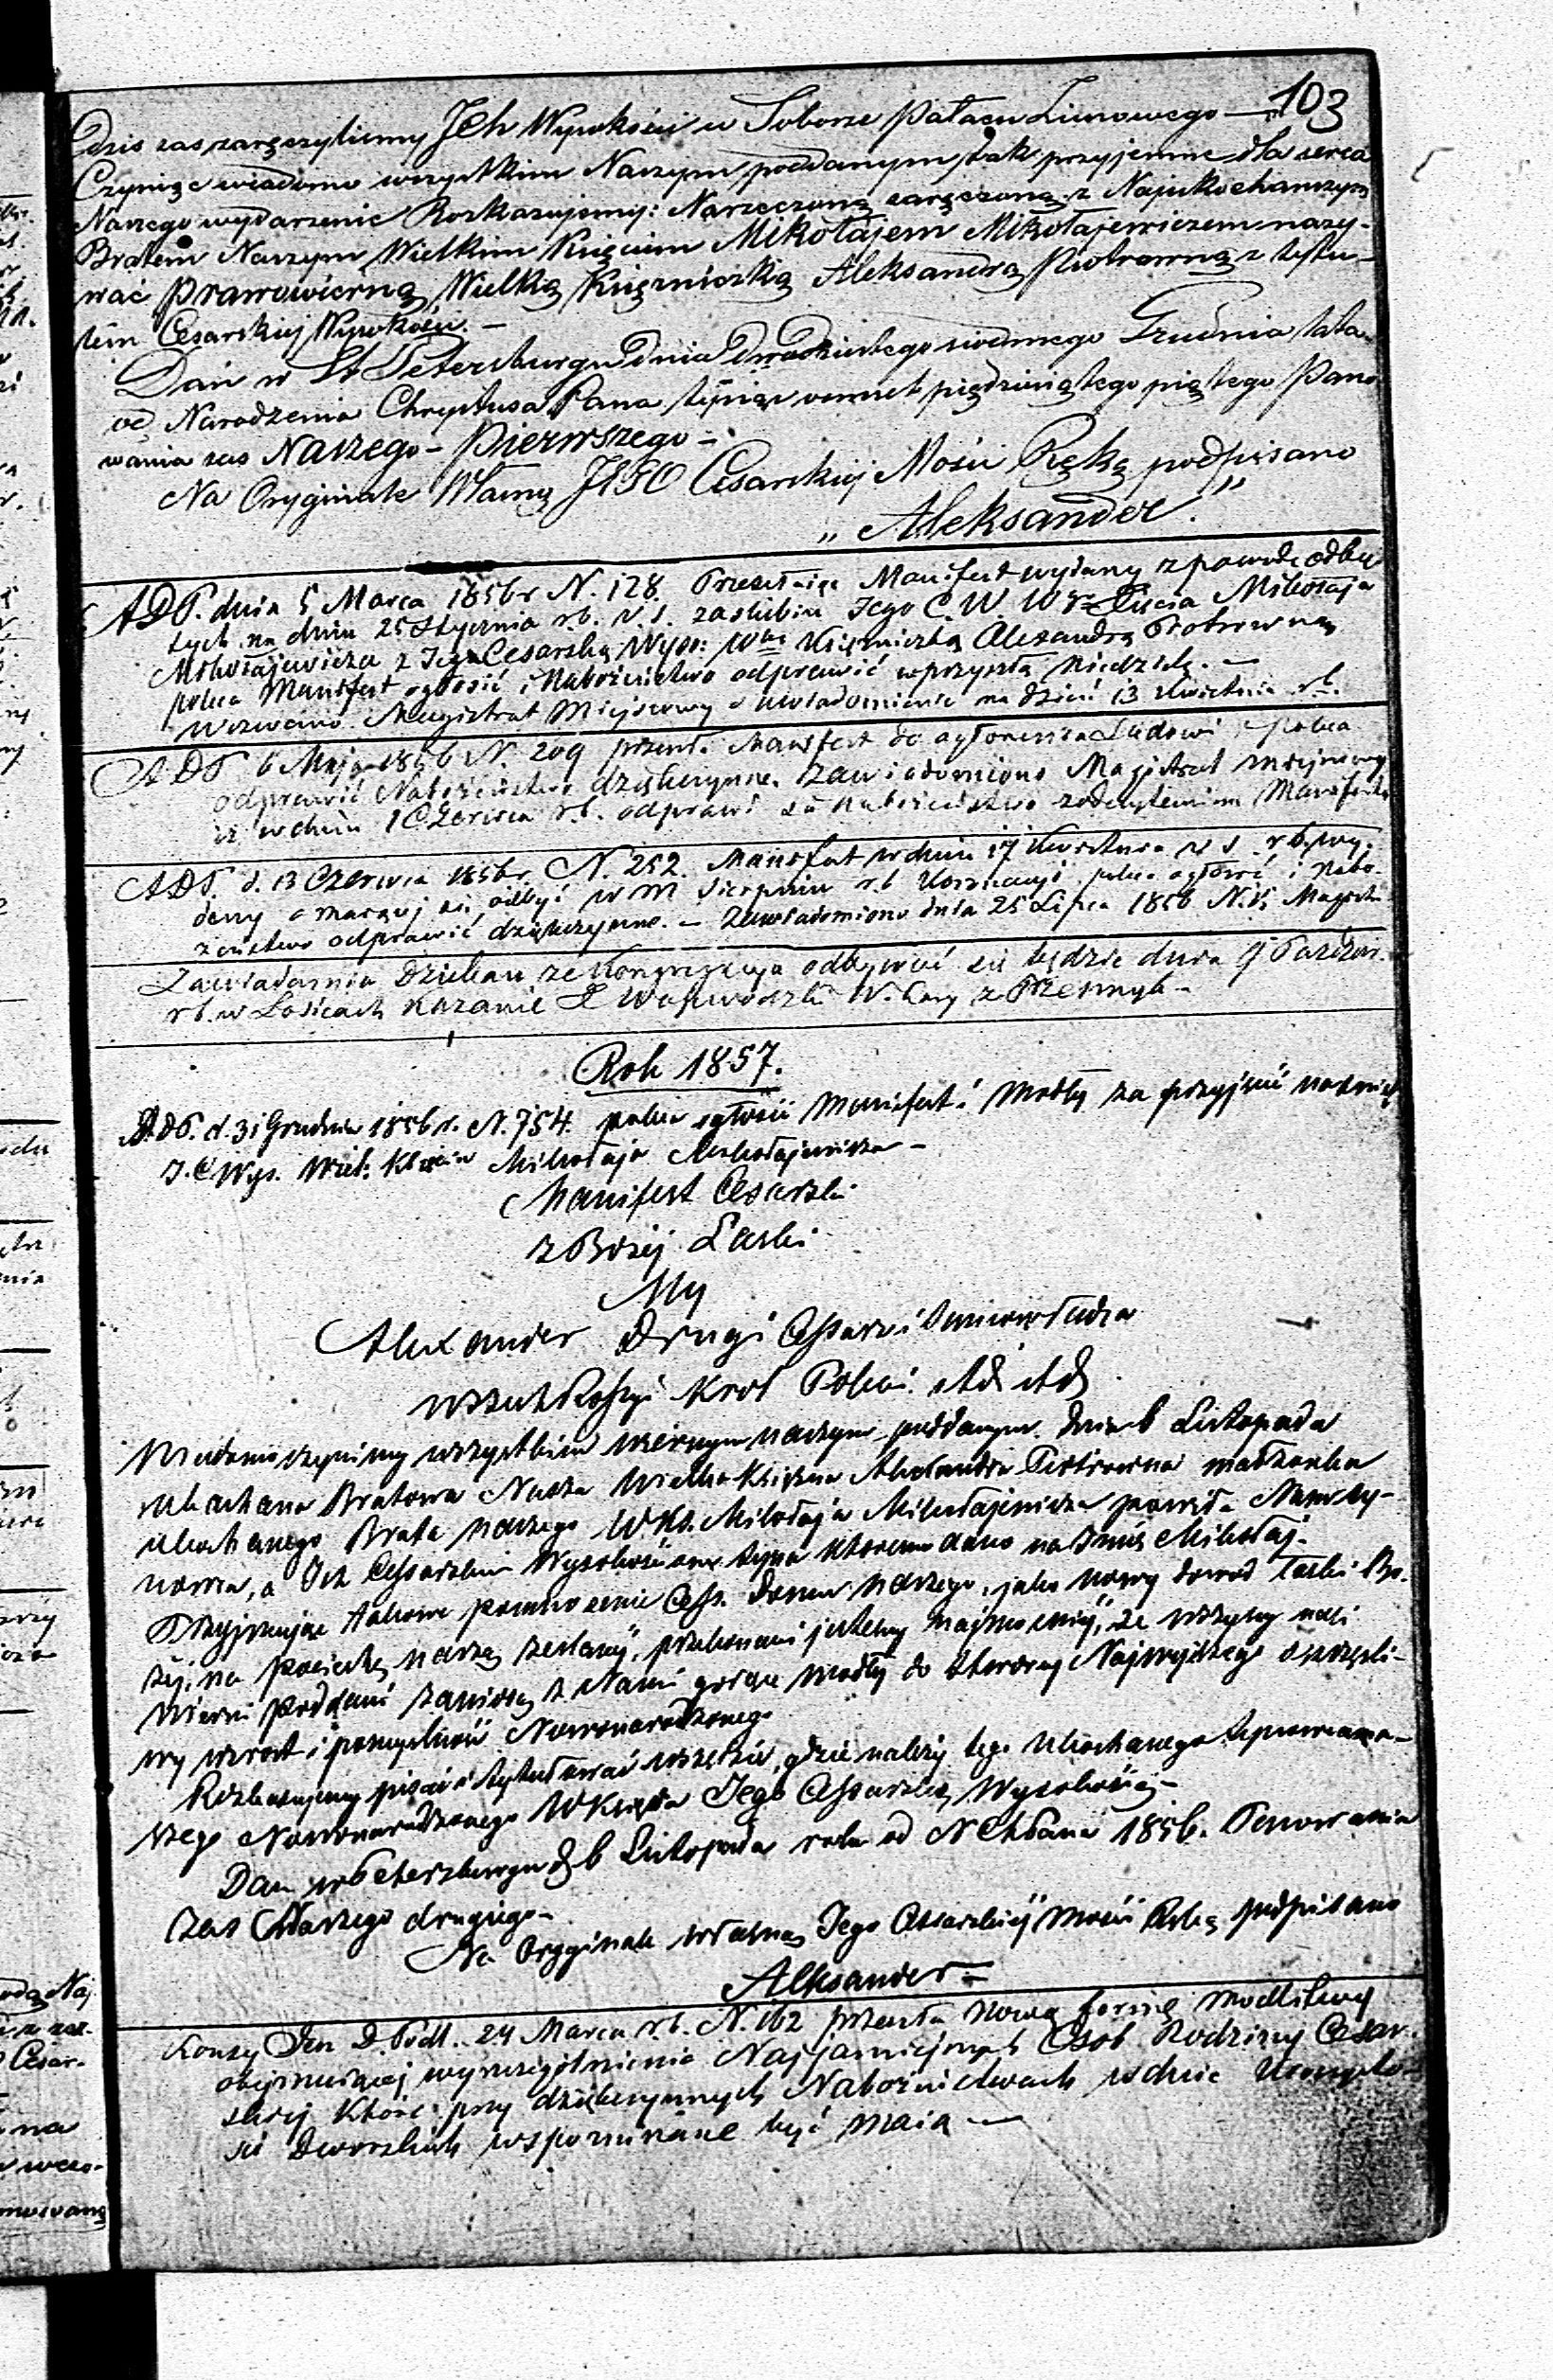 103
Dziś zaś zaręczyliśmy Ich Wysokości w Soborze Pałacu Zimowego —
Czyniąc wiadomo wszystkim Naszym poddanym, tak przyjemne dla serca
Naszego wydarzenie Rozkazujemy: Narzeczoną zaręczoną z Najukochańszym
Bratem Naszym Wielkim Księciem Mikołajem Mikołajewiczem nazy-
wać Prawowierną Wielką Księżniczką Aleksandrą Piotrowną z tytu-
łem Cesarskiej Wysokości. —
Dan w St Petersburgu Dnia Dwudziestego siódmego Grudnia lata
od Narodzenia Chrystusa Pana tysiąc osmset pięćdziesiątego piątego Pano
wania zaś Naszego – Pierwszego –
Na Oryginale Własną JEGO Cesarskiej Mości Ręką podpisano
„Aleksander."
ADP. dnia 5 Marca 1856 r N. 128. Przesyłając Manifest wydany z powodu odby
tych na dniu 25 Stycznia r.b. v.s. zaślubin Jego C. W. W. Xięcia Mikołaja
Mikołajewicza z Jego Cesarską Wyso: Wką Księżniczką Alexandrą Piotrowną
poleca Manifest ogłosić i Nabożeństwo odprawić w przyszłą Niedzielę. —
Wezwano Magistrat Miejscowy o uwiadomienie na dzień 13 Kwietnia r.b.
ADP 6 Maja 1856 N. 209 przesyła Manifest do ogłoszenia Ludowi i poleca
odprawić Nabożeństwo dziękczynne. Zawiadomiono Magistrat miejscowy
iż w dniu 1 Czerwca r.b. odprawi się nabożeństwo z odczytaniem Manifestu
ADP. d. 13 Czerwca 1856 r. N. 252. Manifest w dniu 17 Kwietnia v s r.b. wy-
dany o mającej się odbyć w M Sierpniu r.b Koronacyi, poleca ogłosić i nabo-
żeństwo odprawić dziękczynne. — Zawiadomiono dnia 25 Lipca 1856 N. Magistr.
Zawiadamia Dziekan, że Kongregacya odbywać się będzie dnia 9 Paździer.
r.b. w Łosicach Kazanie z Przesmyk –
Rok 1857.
ADP. d. 31 Grudnia 1856 r. N. 754. poleca ogłosić Manifest i Modły za przyjście na świat
J. C Wys. Wiel: Xięcia Mikołaja Mikołajewicza —
Manifest Cesarski
z Bożej Łaski
My
Alexander Drugi Cesarz i Samowładca
wszech Rossyi Król Polski. etc etc
Wiadomo czynimy wszystkim wiernym naszym poddanym. Dnia 6 Listopada
Ukochana Bratowa Nasza Wielka Księżna Alexandra Piotrowna małżonka
ukochanego Brata naszego W Ks. Mikołaja Mikołajewicza powiła Nam sy-
nowca, a Ich Cesarskim Wysokościom syna któremu dano na Imię Mikołaj.
Przyjmując takowe pomnożenie Ces. Domu naszego, jako nowy dowód łaski Bo-
żej, na pociechę naszą zesłanej, przekonani jesteśmy najmocniej, że wszyscy nasi
wierni poddani zaniosą z Nami gorące modły do Stwórcy Najwyższego o szczęśli-
wy wzrost i pomyślność Nowonarodzonego
Rozkazujemy pisać i tytułować wszędzie, gdzie należy tego Ukochanego
Nowonarodzonego W Księcia Jego Cesarską Wysokością –
Dan w Petersburgu d 6 Listopada roku od N Ch Pana 1856. Panowania
zaś Naszego drugiego –
Na Orygginale własną Jego Cesarskiej Mości Ręką podpisano
Aleksander –
Konsy Jen D. Podl. 24 Marca r.b. N. 162 przesyła nową formę modlitwy
obejmującej wyszczególnienie Najjaśniejszych Osób Rodziny Cesar-
skiej które przy dziękczynnych Nabożeństwach w dnie Uroczysto-
ści Dworskich wspominane być maią —